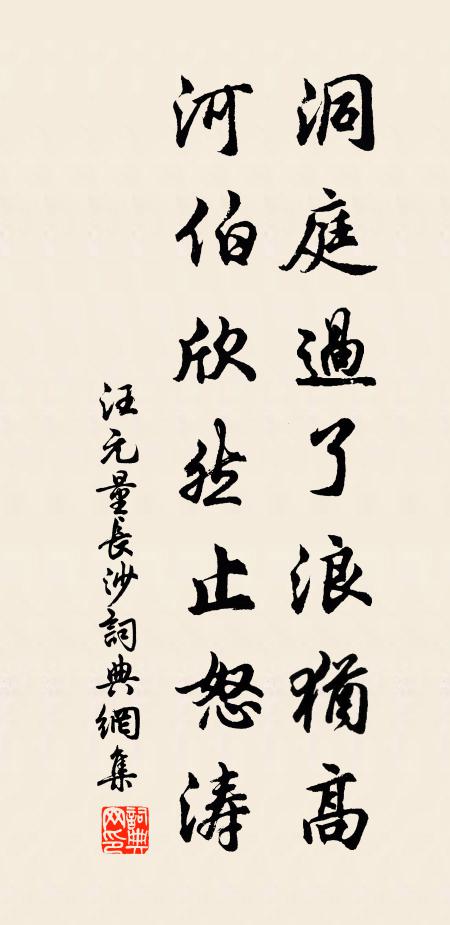 洞庭過了浪猶高
河伯欣然止怒濤
汪元量長沙詞典網集
詞典網印